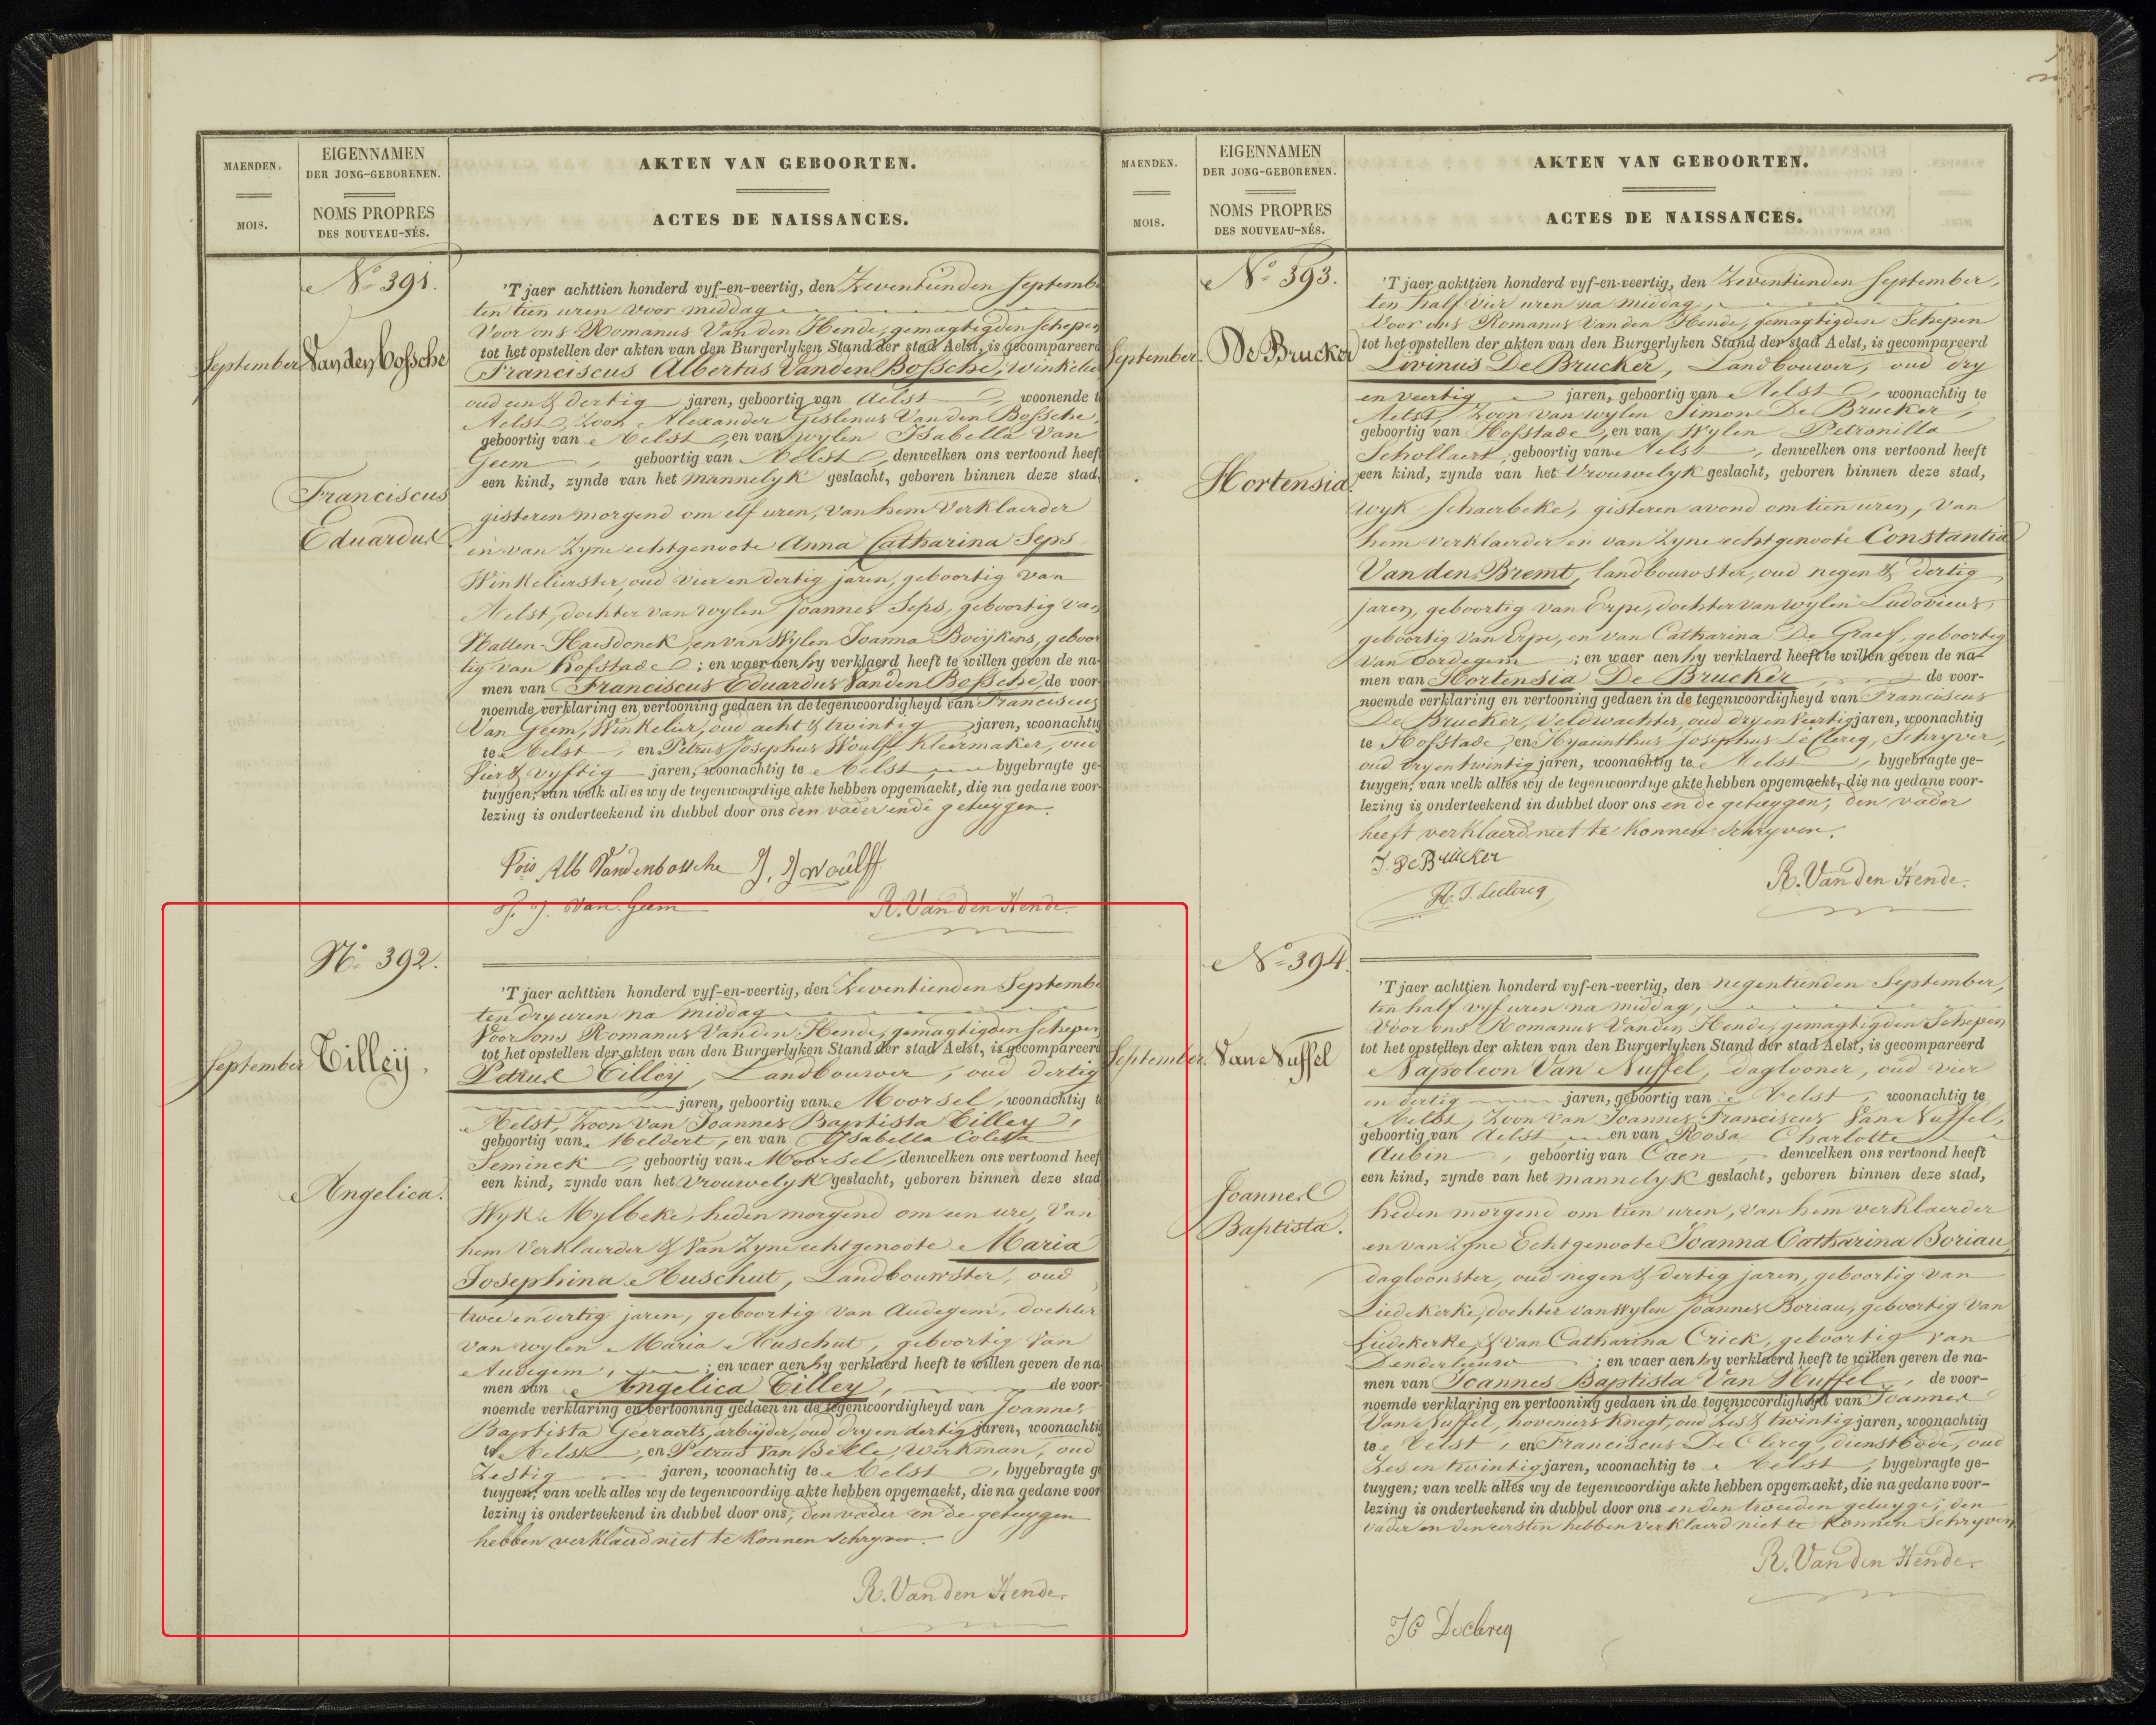 MAENDEN.
MOIS.
EIGENNAMEN
DER JONG-GEBORENEN.
NOMS PROPRES
DES NOUVEAU-NÉS.
AKTEN VAN GEBOORTEN.
ACTES DE NAISSANCES.
No 391.
September
Van den Bossche
Franciscus
Eduardus
'T jaer achttien honderd vyf-en-veertig, den Zeventienden Septemb
ten tien uren voor middag
Voor ons Romanus Van den Hende, gemagtigden Schepen
tot het opstellen der akten van den Burgerlyken Stand der stad Aelst, is gecompareerd
Franciscus Albertus Vanden Bossche, Winkelie
oud een & dertig jaren, geboortig van Aelst, woonende t
Aelst, Zoon Alexander Gislenus Van den Bossche,
geboortig van Aelst, en van wylen Isabella Van
Geem, geboortig van Aelst, denwelken ons vertoond heeft
een kind, zynde van het mannelyk geslacht, geboren binnen deze stad,
gisteren morgend om elf uren, van hem Verklaerder
en van Zyne echtgenoote Anna Catharina Seps
Winkelierster, oud vier en dertig jaren, geboortig van
Aelst, dochter van wylen Joannes Seps, geboortig van
Hallen-Haesdonck, en van Wylen Joanna Booykens, geboor
tig van Hofstade; en waer aen hy verklaerd heeft te willen geven de na-
men van Franciscus Eduardus Van den Bossche, de voor-
noemde verklaring en vertooning gedaen in de tegenwoordigheyd van Franciscus
Van Geem, Winkelier, oud acht & twintig jaren, woonachtig
te Aelst, en Petrus Josephus Woulff, Kleermaker, oud
Vier & vyftig jaren, woonachtig te Aelst, bygebragte ge-
tuygen; van welk alles wy de tegenwoordige akte hebben opgemaekt, die na gedane voor-
lezing is onderteekend in dubbel door ons den vader ende getuygen.
Fois Alb Vandenbossche P. J Woulff
Van Geem R. Van den Hende.
No 392.
September
Tilleÿ.
Angelica.
'T jaer achttien honderd vyf-en-veertig, den Zeventienden Septemb
ten dry uren na middag
Voor ons Romanus Van den Hende, gemagtigden Schepen
tot het opstellen der akten van den Burgerlyken Stand der stad Aelst, is gecompareerd
Petrus Tilleÿ, Landbouwer, oud dertig
jaren, geboortig van Moorsel, woonachtig t
Aelst, Zoon van Joannes Baptista Tilley,
geboortig van Meldert, en van Ysabella Coleta
Seminck, geboortig van Moorsel, denwelken ons vertoond heef
een kind, zynde van het Vrouwelyk geslacht, geboren binnen deze stad
Wyk Mylbeke, heden morgend om een ure, van
hem Verklaerder & van Zyne echtgenoote Maria
Josephina Auschut, Landbouwster, oud
twee en dertig jaren, geboortig van Audegem, dochter
van wylen Maria Auschut, geboortig van
Audegem, ; en waer aen hy verklaerd heeft te willen geven de na
men van Angelica Tilley, de voor-
noemde verklaring en vertooning gedaen in de tegenwoordigheyd van Joannes
Baptista Geeraerts, arbeyder, oud dry en dertig jaren, woonachtig
te Aelst, en Petrus Van Belle, Werkman, oud
Zestig jaren, woonachtig te Aelst, bygebragte ge
tuygen; van welk alles wy de tegenwoordige akte hebben opgemaekt, die na gedane voor
lezing is onderteekend in dubbel door ons, den vader en de getuygen
hebben verklaerd niet te konnen schryven.
R. Van den Hende.
MAENDEN.
MOIS.
EIGENNAMEN
DER JONG-GEBORENEN.
NOMS PROPRES
DES NOUVEAU-NÉS.
AKTEN VAN GEBOORTEN.
ACTES DE NAISSANCES.
No 393.
September.
De Brucker
Hortensia.
'T jaer achttien honderd vyf-en-veertig, den Zeventienden September,
ten half vier uren na middag,
Voor ons Romanus Van den Hende, gemagtigden Schepen
tot het opstellen der akten van den Burgerlyken Stand der stad Aelst, is gecompareerd
Livinus De Brucker, Landbouwer, oud dry
en veertig jaren, geboortig van Aelst, woonachtig te
Aelst, Zoon van wylen Simon De Brucker,
geboortig van Hofstade, en van Wylen Petronilla
Schollaert, geboortig van Aelst, denwelken ons vertoond heeft
een kind, zynde van het Vrouwelyk geslacht, geboren binnen deze stad,
wyk Schaerbeke, gisteren avond om tien uren, van
hem verklaerder en van Zyne echtgenoote Constantia
Van den Bremt, landbouwster, oud negen & dertig
jaren, geboortig van Erpe, dochter van wylen Ludovicus,
geboortig van Erpe, en van Catharina De Graef, geboortig
van Oordegem; en waer aen hy verklaerd heeft te willen geven de na-
men van Hortensia De Brucker, de voor-
noemde verklaring en vertooning gedaen in de tegenwoordigheyd van Franciscus
De Brucker, Veldwachter, oud dry en veertig jaren, woonachtig
te Hofstade, en Hyacinthus Josephus Leclercq, Schryver,
oud dry en twintig jaren, woonachtig te Aelst, bygebragte ge-
tuygen; van welk alles wy de tegenwoordige akte hebben opgemaekt, die na gedane voor-
lezing is onderteekend in dubbel door ons en de getuygen, den vader
heeft verklaerd niet te konnen schryven.
De Brucker
H. J. Leclercq R. Van den Hende.
No 394.
September.
Van Nuffel
Joannes
Baptista.
'T jaer achttien honderd vyf-en-veertig, den negentienden September,
ten half vyf uren na middag,
Voor ons Romanus Van den Hende, gemagtigden Schepen
tot het opstellen der akten van den Burgerlyken Stand der stad Aelst, is gecompareerd
Napoleon Van Nuffel, daglooner, oud vier
en dertig jaren, geboortig van Aelst, woonachtig te
Aelst, Zoon van Joannes Franciscus Van Nuffel,
geboortig van Aelst, en van Rosa Charlotte
Aubin, geboortig van Caen, denwelken ons vertoond heeft
een kind, zynde van het mannelyk geslacht, geboren binnen deze stad,
heden morgend om tien uren, van hem verklaerder
en van Zyne Echtgenoote Joanna Catharina Boriau,
dagloonster, oud negen & dertig jaren, geboortig van
Liedekerke, dochter van Wylen Joannes Boriau, geboortig van
Liedekerke, & van Catharina Crick, geboortig van
Denderleeuw; en waer aen hy verklaerd heeft te willen geven de na-
men van Joannes Baptista Van Nuffel, de voor-
noemde verklaring en vertooning gedaen in de tegenwoordigheyd van Joannes
Van Nuffel, hoveniers knegt, oud Zes & twintig jaren, woonachtig
te Aelst, en Franciscus De Clercq, dienstbode, oud
Zes en twintig jaren, woonachtig te Aelst, bygebragte ge-
tuygen; van welk alles wy de tegenwoordige akte hebben opgemaekt, die na gedane voor-
lezing is onderteekend in dubbel door ons en den tweeden getuyge, den
vader en den eersten hebben verklaerd niet te konnen Schryven
R. Van den Hende.
Declercq